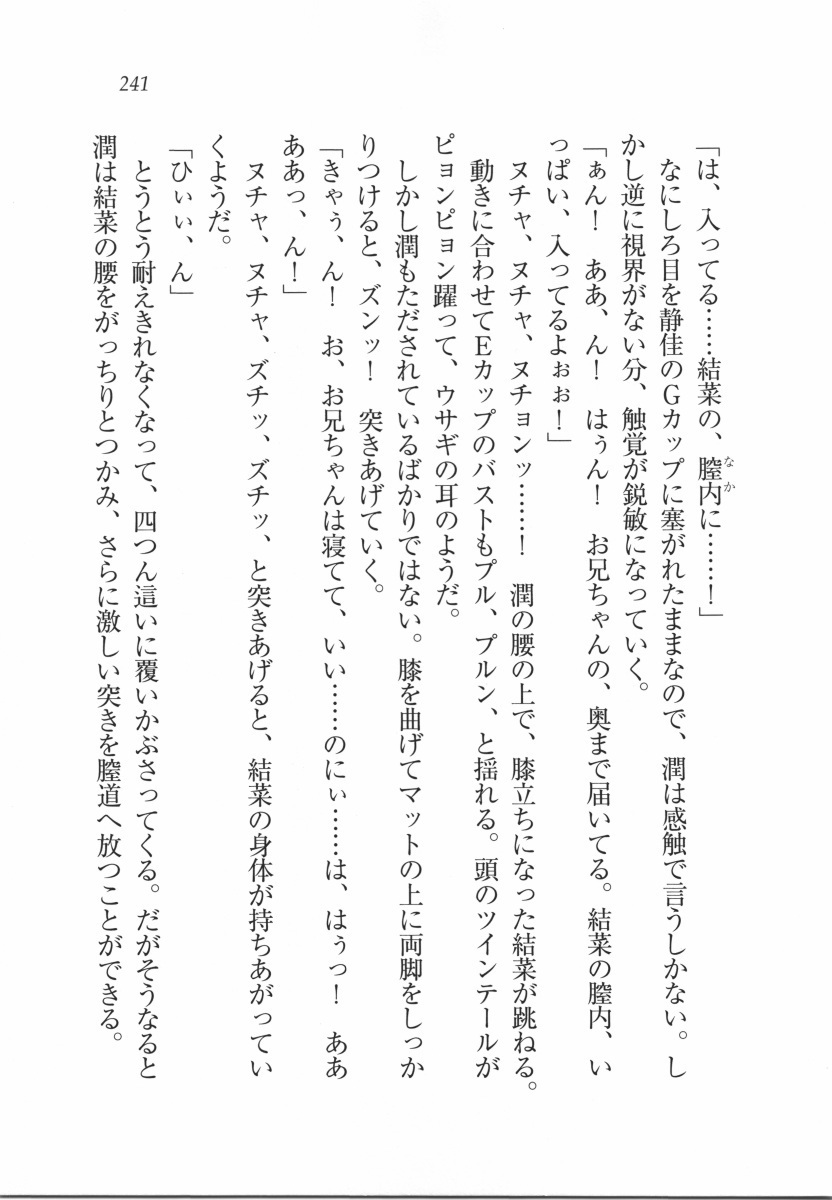 241
「は、入ってる……結菜の、膣内に……！」
なにしろ目を静佳のＧカップに塞がれたままなので、潤は感触で言うしかない。し
かし逆に視界がない分、触覚が鋭敏になっていく。
「ぁん！　ああ、ん！　はぅん！　お兄ちゃんの、奥まで届いてる。結菜の膣内、い
っぱい、入ってるよぉぉ！」
ヌチャ、ヌチャ、ヌチョンッ……！　潤の腰の上で、膝立ちになった結菜が跳ねる。
動きに合わせてＥカップのバストもプル、プルン、と揺れる。頭のツインテールが
ピョンピョン躍って、ウサギの耳のようだ。
しかし潤もただされているばかりではない。膝を曲げてマットの上に両脚をしっか
りつけると、ズンッ！　突きあげていく。
「きゃぅ、ん！　お、お兄ちゃんは寝てて、いい……のにぃ……は、はぅっ！　ああ
ああっ、ん！」
ヌチャ、ヌチャ、ズチッ、ズチッ、と突きあげると、結菜の身体が持ちあがってい
くようだ。
「ひぃぃ、ん」
とうとう耐えきれなくなって、四つん這いに覆いかぶさってくる。だがそうなると
潤は結菜の腰をがっちりとつかみ、さらに激しい突きを膣道へ放つことができる。